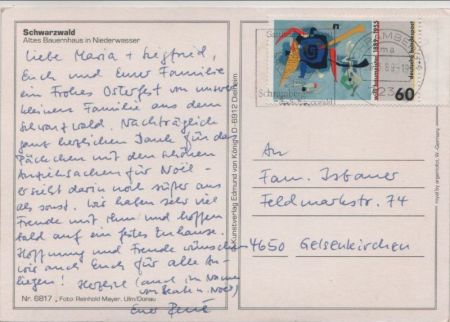 Schwarzwald
Altes Bauernhaus in Niederwasser
Liebe Maria + Siegfried,
Euch und Eurer Familie
ein Frohes Osterfest von unserer
kleinen Familie aus dem
Schwarzwald. Nachträglich
ganz herzlichen Dank für das
Päckchen mit den schönen
Anziehsachen für Noël -
er sieht darin noch süßer aus
als sonst. Wir haben sehr viel
Freude mit ihm und hoffen
bald auf ein gutes Zuhause.
Hoffnung und Freude wünschen
wir auch Euch für alle An-
liegen! Herzlichst (auch im Namen
von Beate u. Noël)
Euer René
Nr. 6817 Foto: Reinhold Mayer, Ulm/Donau
© Kunstverlag Edmund von König D-6912 Dielheim
deutsche bundespost
60
An
Fam. Isbaner
Feldmarkstr. 74
4650 Gelsenkirchen
W.-Germany